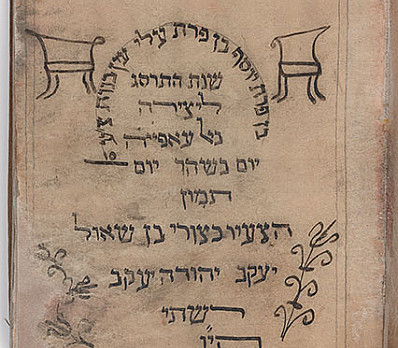 בן פרת יוסף בן פרת עלי עין בנות
שנת התרסג
ליצירה
עאפייה
יום בשהר יום
תמון
הצעיר כצורי בן שאול
יעקב יהודה עקב
השתי
הי״ו